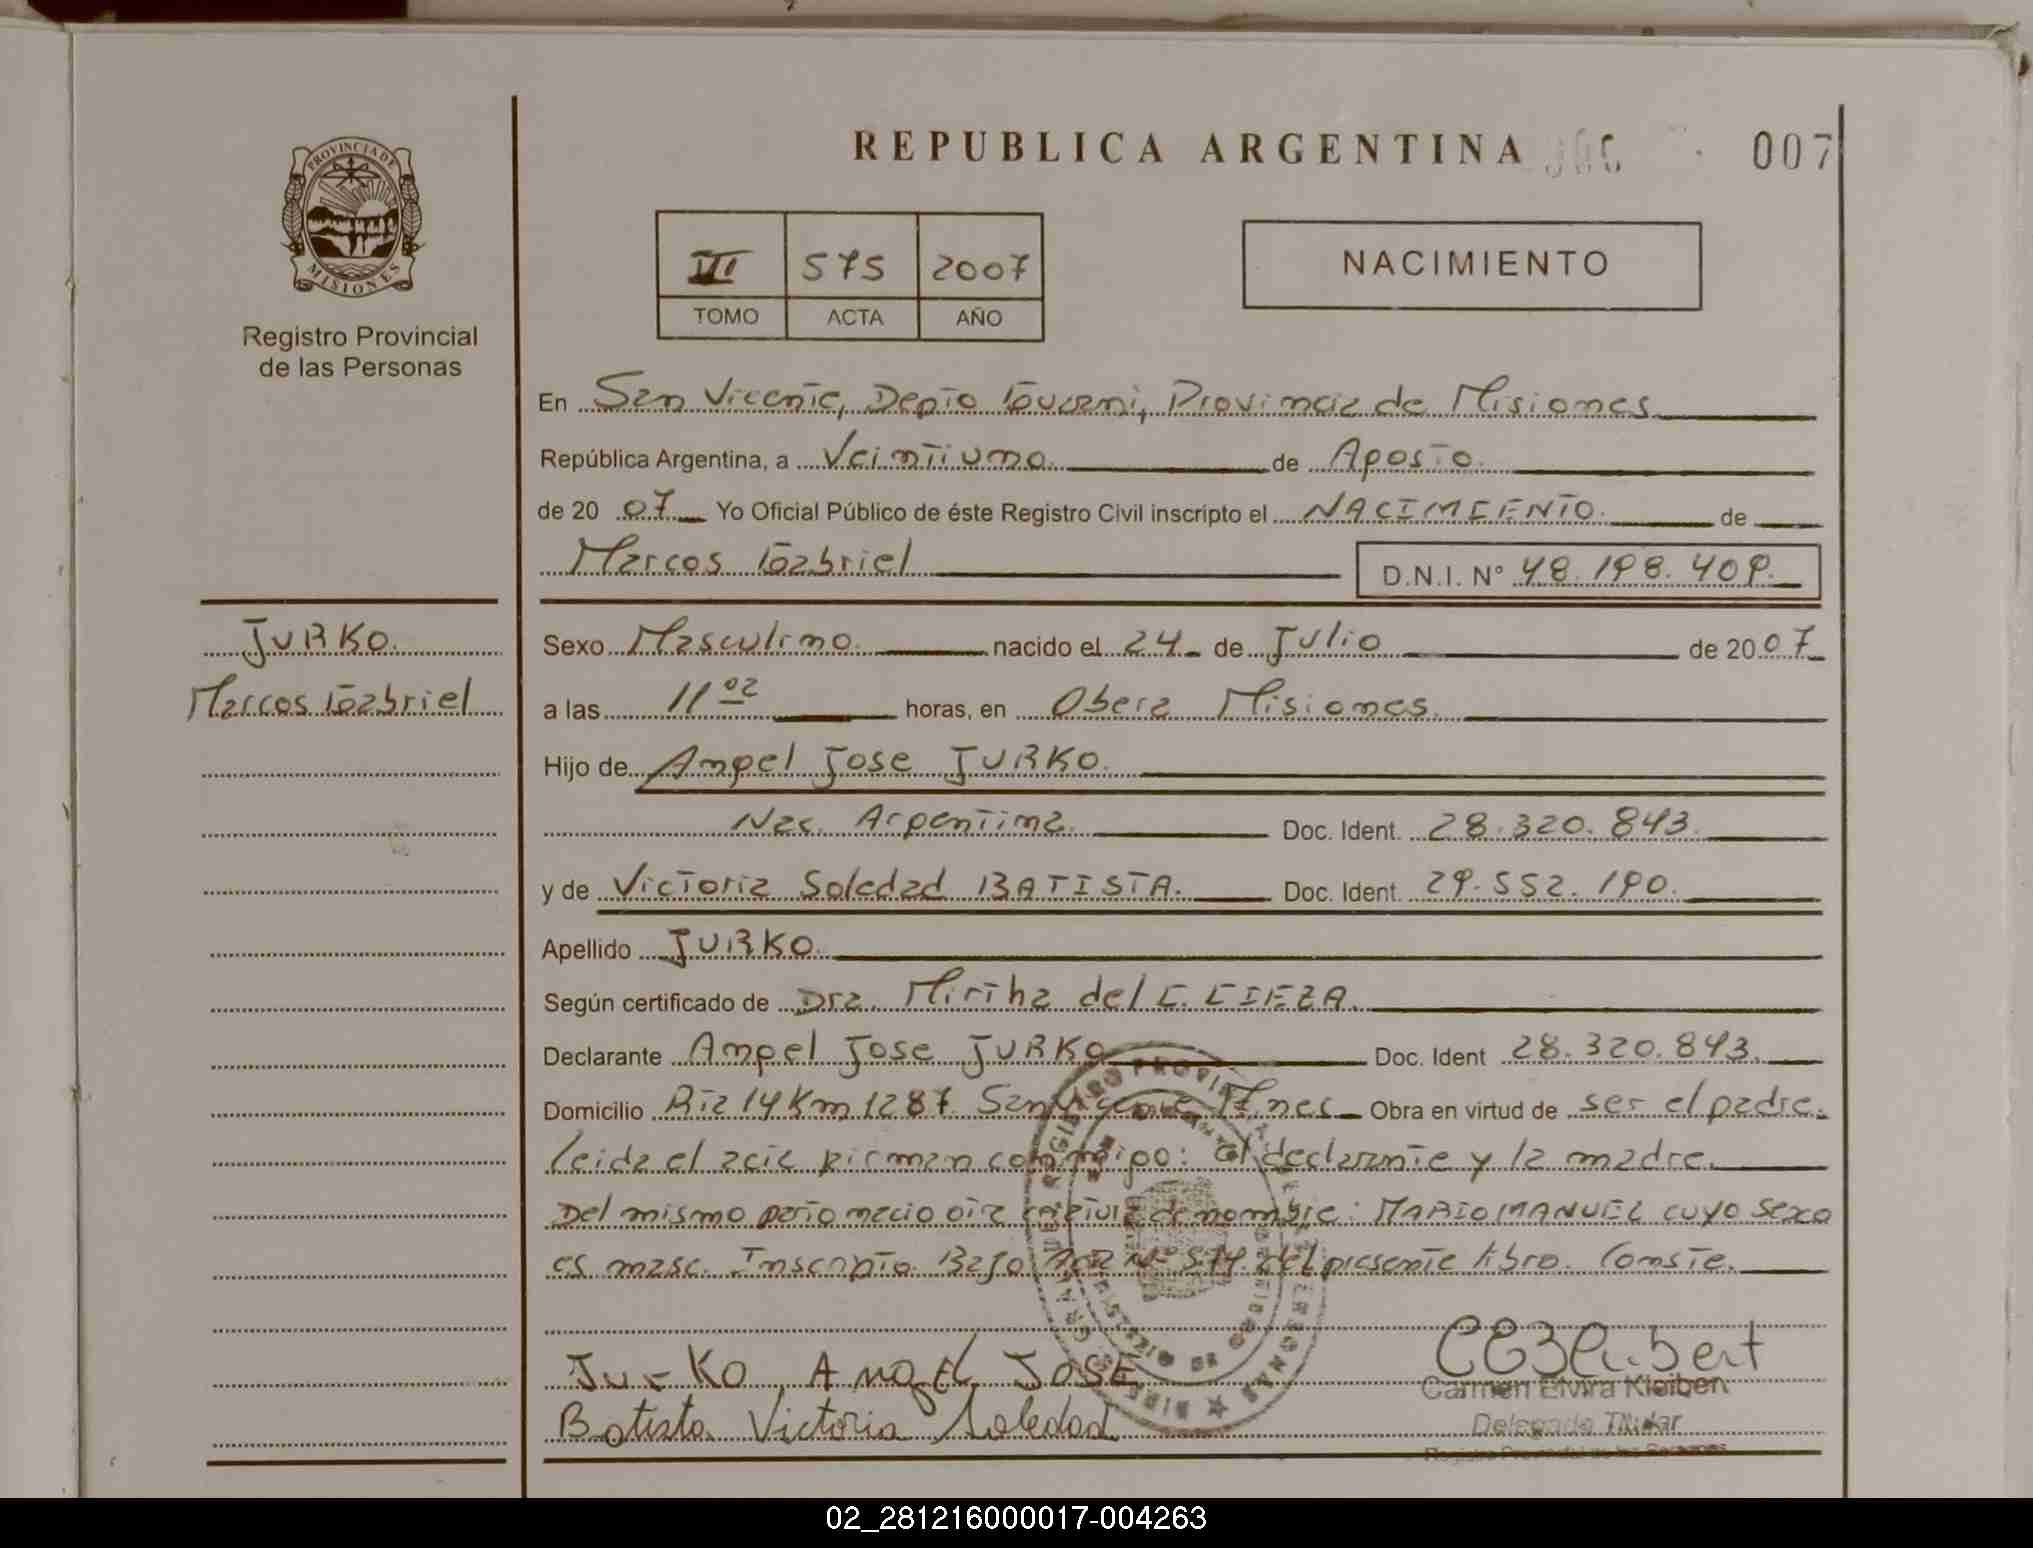 REPUBLICA ARGENTINA
007
PROVINCIA DE
MISIONES
Registro Provincial
de las Personas
III 575 2007
TOMO ACTA AÑO
NACIMIENTO
En San Vicente, Depto Guarani, Provincia de Misiones
República Argentina, a Veintiuno de Agosto
de 20 07 Yo Oficial Público de éste Registro Civil inscripto el NACIMIENTO de
Marcos Gabriel D.N.I. N° 48.198.409.
JURKO.
Marcos Gabriel
Sexo Masculino nacido el 24 de Julio de 2007
a las 11 02 horas, en Obera Misiones.
Hijo de Angel Jose JURKO.
Nac. Argentina. Doc. Ident. 28.320.843.
y de Victoria Soledad BATISTA. Doc. Ident. 29.552.190.
Apellido JURKO.
Según certificado de Dra. Mirtha del C. CIEZA.
Declarante Angel Jose JURKO Doc. Ident 28.320.843.
Domicilio Rta 14 Km 1287. San Vicente Mnes Obra en virtud de ser el padre.
leida el acta firman conmigo: el declarante y la madre.
Del mismo parto nacio otra criatura de nombre: MARIO MANUEL cuyo sexo
es masc. Inscripto Bajo Acta N° 574 del presente libro. Conste.
JurKo AngEL JOSE
Batista Victoria Soledad
Carmen Elvira Kleibert
Delegada Titular
Registro Provincial de las Personas
02_281216000017-004263